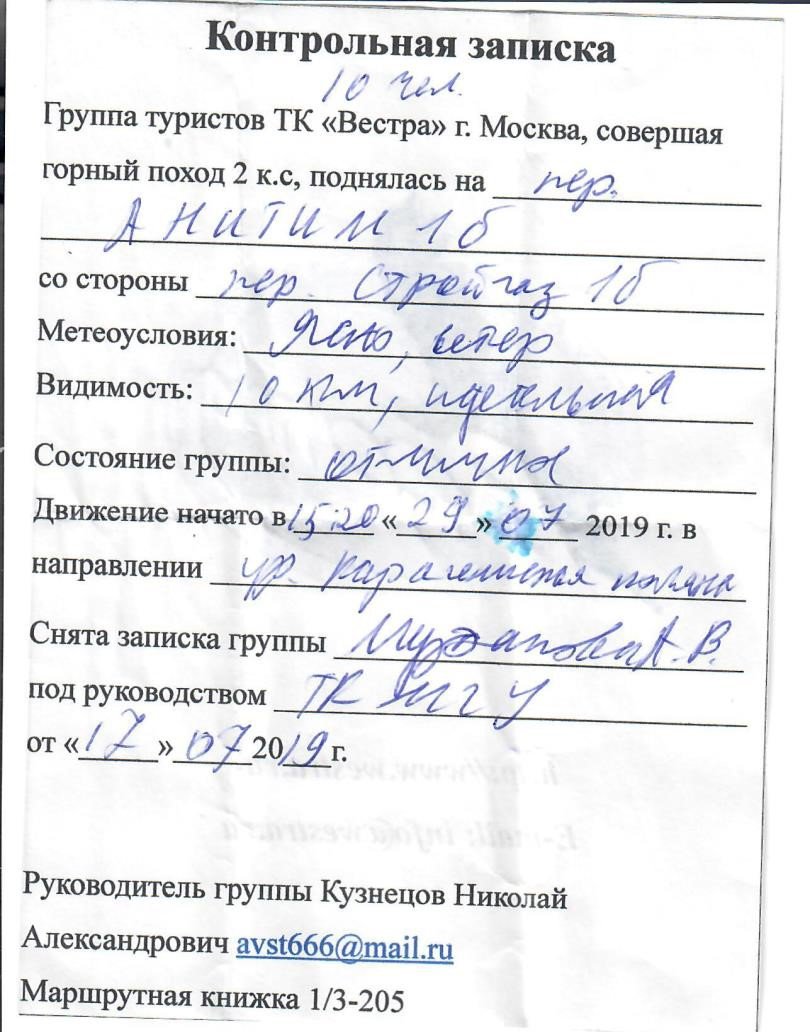 Контрольная записка
10 чел.
Группа туристов ТК «Вестра» г. Москва, совершая
горный поход 2 к.с, поднялась на пер.
АНИТИМ 1б
со стороны пер. Стройгаз 1б
Метеоусловия: Ясно, ветер
Видимость: 10 км, идеальная
Состояние группы: отличное
Движение начато в 15:20 «29» 07 2019 г. в
направлении ур. поляна
Снята записка группы А.В.
под руководством ТК МГУ
от «17» 07 2019 г.
Руководитель группы Кузнецов Николай
Александрович avst666@mail.ru
Маршрутная книжка 1/3-205